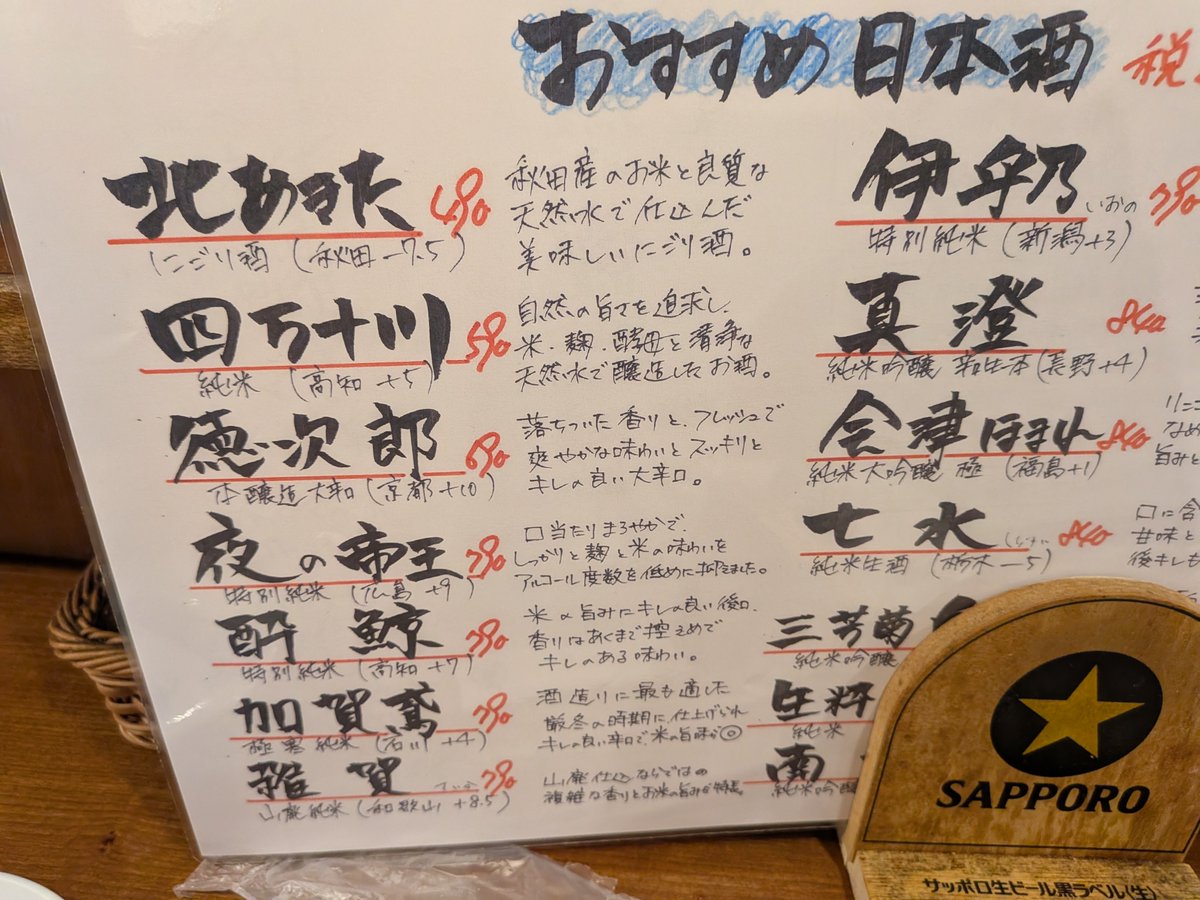 おすすめ日本酒 税
北あきた 490
にごり酒 (秋田 −7.5)
秋田産のお米と良質な
天然水で仕込んだ
美味しいにごり酒。
四万十川 590
純米 (高知 +5)
自然の旨さを追求し、
米・麹・酵母と清浄な
天然水で醸造したお酒。
徳次郎 690
本醸造大辛口 (京都 +10)
落ちついた香りと、フレッシュで
爽やかな味わいとスッキリと
キレの良い大辛口。
夜の帝王 790
特別純米 (広島 +9)
口当たりまろやかで、
しっかりと麹と米の味わいを
アルコール度数を低めに抑えました。
酔鯨 790
特別純米 (高知 +7)
米の旨みにキレの良い後口、
香りはあくまで控えめで
キレのある味わい。
加賀鳶 790
極寒純米 (石川 +4)
酒造りに最も適した
厳冬の時期に仕上げられ
キレの良い辛口で、米の旨味が◎
雑賀 790
山廃純米 (和歌山 +8.5)
山廃仕込ならではの
複雑な香りとお米の旨みが特長。
伊乎乃 いおの 790
特別純米 (新潟+3)
真澄 840
純米吟醸 (長野+4)
会津ほまれ 840
純米大吟醸 極 (福島+1)
なめ
旨みと
七水 840
純米生酒 (栃木 −5)
口に含
甘味と
後キレも
三芳菊
純米吟醸
生粋
純米
南
純米吟醸
SAPPORO
サッポロ生ビール黒ラベル(生)